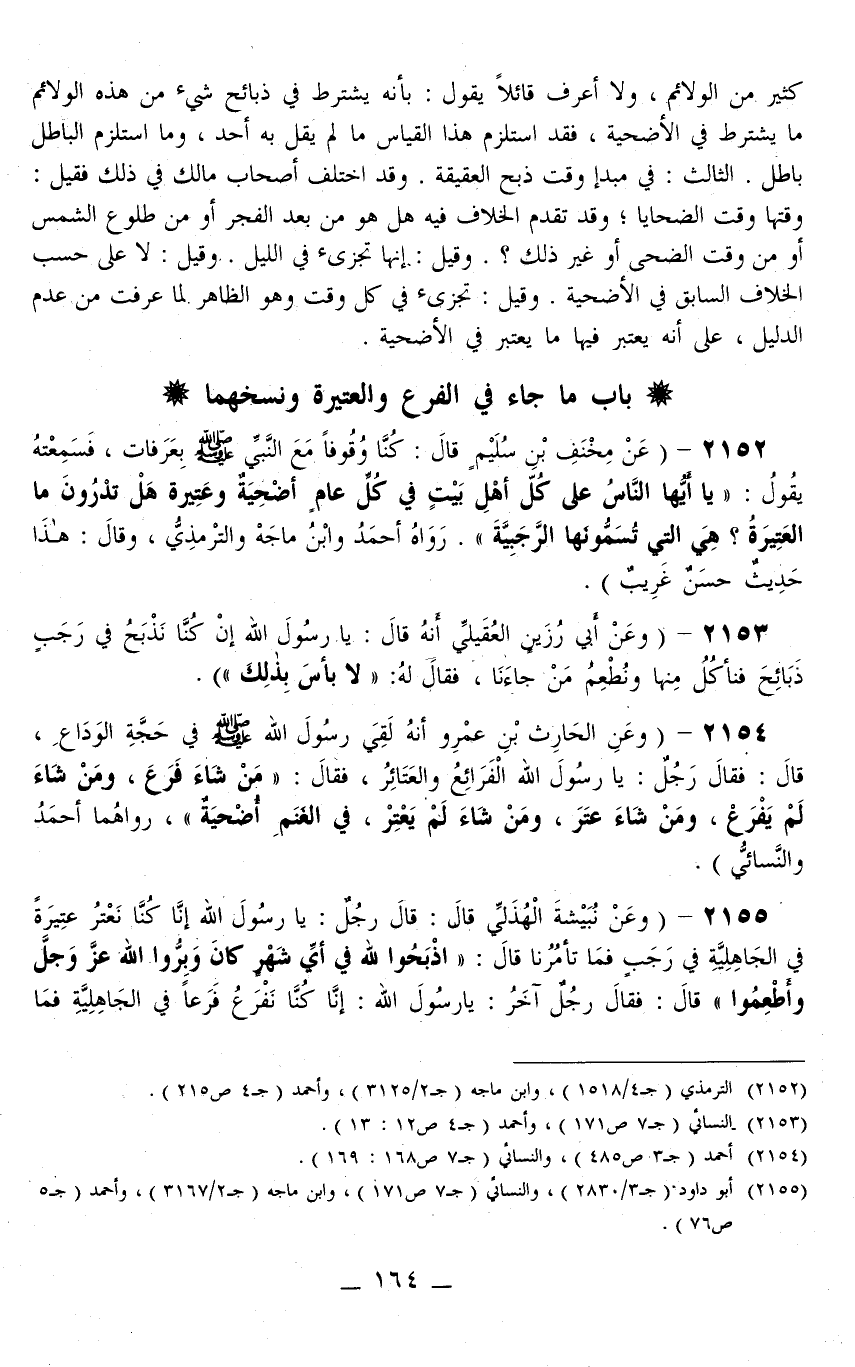 كثير من الولائم ، ولا أعرف قائلاً يقول : بأنه يشترط في ذبائح شيء من هذه الولائم
ما يشترط في الأضحية ، فقد استلزم هذا القياس ما لم يقل به أحد ، وما استلزم الباطل
باطل . الثالث : في مبدإ وقت ذبح العقيقة . وقد اختلف أصحاب مالك في ذلك فقيل :
وقتها وقت الضحايا ؛ وقد تقدم الخلاف فيه هل هو من بعد الفجر أو من طلوع الشمس
أو من وقت الضحى أو غير ذلك ؟ . وقيل : إنها تجزىء في الليل . وقيل : لا على حسب
الخلاف السابق في الأضحية . وقيل : تجزىء في كل وقت وهو الظاهر لما عرفت من عدم
الدليل ، على أنه يعتبر فيها ما يعتبر في الأضحية .
✷ باب ما جاء في الفرع والعتيرة ونسخهما ✷
٢١٥٢ – ( عَنْ مِخْنَفِ بْنِ سُلَيْمٍ قالَ : كُنَّا وُقُوفاً مَعَ النَّبِيِّ ﷺ بِعَرفات ، فَسَمِعْتهُ
يقُولُ : « يا أَيُّها النَّاسُ على كُلّ أهْلِ بَيْتٍ في كُلِّ عامٍ أضْحِيَةٌ وعَتِيرة هَلْ تدْرُونَ ما
العَتِيرَةُ ؟ هِيَ التي تُسَمُّونَها الرَّجَبِيَّةَ » . رَوَاهُ أحمَدُ وابْنُ ماجَهْ والترْمذِيُّ ، وقالَ : هٰذَا
حَدِيثٌ حسَنٌ غَرِيبٌ ) .
٢١٥٣ – ( وعَنْ أبي رُزَينٍ العُقَيليِّ أَنَهُ قالَ : يا رسُولَ الله إنْ كُنَّا نَذْبَحُ في رَجَبٍ
ذَبَائِحَ فنأكُلُ مِنها ونُطْعِمُ مَنْ جاءَنَا ، فقالَ لهُ: « لا بأسَ بِذٰلِكَ ») .
٢١٥٤ – ( وعَنِ الحَارِث بْنِ عمْرو أنهُ لَقِيَ رسُولَ الله ﷺ في حَجَّةِ الوَدَاعِ ،
قالَ : فقالَ رَجُلٌ : يا رسُولَ الله الْفَرَائِعُ والعَتَائِرُ ، فقالَ : « مَنْ شَاءَ فَرَعَ ، ومَنْ شَاءَ
لَمْ يَفْرَعْ ، ومَنْ شَاءَ عتَرَ ، ومَنْ شَاءَ لَمْ يَعْتِرْ ، في الغَنَمِ أُضْحيَةٌ » ، رواهُما أحمَدُ
والنَّسائيُّ ) .
٢١٥٥ – ( وعَنْ نُبَيْشةَ الْهُذَليِّ قالَ : قالَ رجُلٌ : يا رسُولَ الله إنَّا كُنَّا نَعْتَرُ عتِيرَةً
في الجَاهِليَّةِ في رَجَبٍ فمَا تأمُرُنا قالَ : « اذْبَحُوا لله في أيِّ شَهْرٍ كانَ وَبِرُّوا الله عزَّ وَجلَّ
وأَطْعِمُوا » قالَ : فقالَ رجُلٌ آخَرُ : يارسُولَ الله : إنَّا كُنَّا نَفْرَعُ فَرَعاً في الجَاهِليَّةِ فمَا
(٢١٥٢) الترمذي ( جـ٤/١٥١٨ ) ، وابن ماجه ( جـ٢/٣١٢٥ ) ، وأحمد ( جـ٤ ص٢١٥ ) .
(٢١٥٣) النسائي ( جـ٧ ص١٧١ ) ، وأحمد ( جـ٤ ص١٢ : ١٣ ) .
(٢١٥٤) أحمد ( جـ٣ ص٤٨٥ ) ، والنسائي ( جـ٧ ص١٦٨ : ١٦٩ ) .
(٢١٥٥) أبو داود ( جـ٣/٢٨٣٠ ) ، والنسائي ( جـ٧ ص١٧١ ) ، وابن ماجه ( جـ٢/٣١٦٧ ) ، وأحمد ( جـ٥
ص٧٦ ) .
– ١٦٤ –